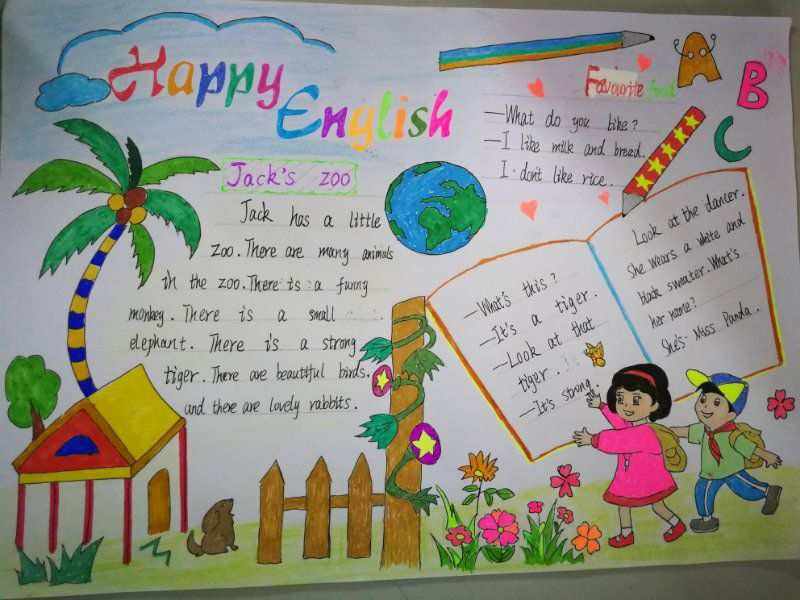 Happy
English
Jack's zoo
Jack has a little
zoo. There are many animals
in the zoo. There is a funny
monkey. There is a small
elephant. There is a strong
tiger. There are beautiful birds.
and there are lovely rabbits.
Favourite food
—What do you like?
—I like milk and bread.
I don't like rice.
A
B
C
—What's this?
—It's a tiger.
—Look at that
tiger.
—It's strong.
Look at the dancer.
She wears a white and
black sweater. What's
her name?
She's Miss Panda.